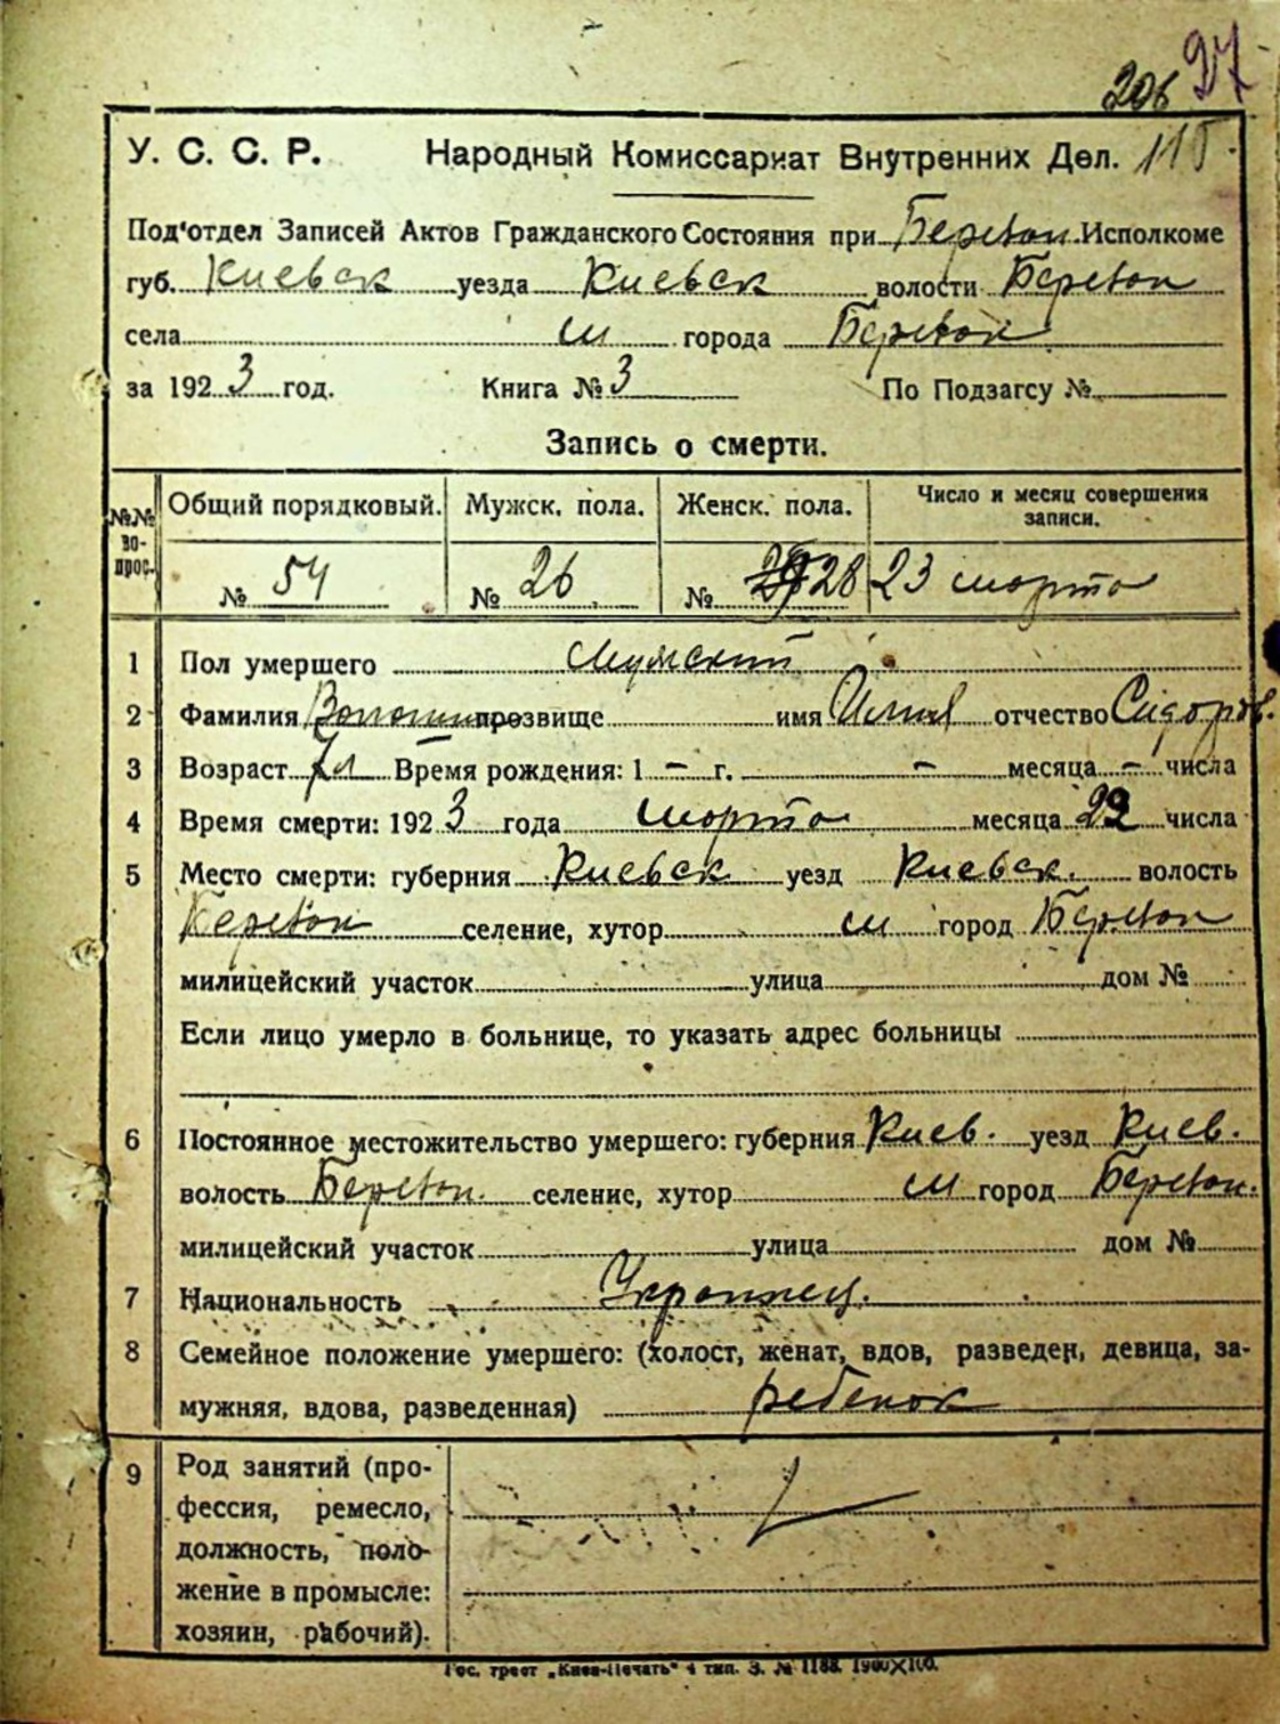 206 27
У. С. С. Р. Народный Комиссариат Внутренних Дел. 115
Под'отдел Записей Актов Гражданского Состояния при Исполкоме
губ. Киевск уезда Киевск волости
села м города
за 1923 год. Книга № 3 По Подзагсу №
Запись о смерти.
№№ вопрос. Общий порядковый. Мужск. пола. Женск. пола. Число и месяц совершения записи.
№ 54 № 26 № 28 23 марта
1 Пол умершего Мужской
2 Фамилия прозвище имя Илия отчество Сидоров.
3 Возраст Время рождения: 1 - г. - месяца - числа
4 Время смерти: 1923 года марта месяца 22 числа
5 Место смерти: губерния Киевск уезд Киевск. волость
селение, хутор м город
милицейский участок улица дом №
Если лицо умерло в больнице, то указать адрес больницы
6 Постоянное местожительство умершего: губерния Киев. уезд Киев.
волость селение, хутор м город
милицейский участок улица дом №
7 Национальность Украинец.
8 Семейное положение умершего: (холост, женат, вдов, разведен, девица, за-
мужняя, вдова, разведенная) ребенок
9 Род занятий (про-
фессия, ремесло,
должность, поло-
жение в промысле:
хозяин, рабочий).
Гос. трест „Киев-Печать" 4 тип. З. № 1188. 1900X100.